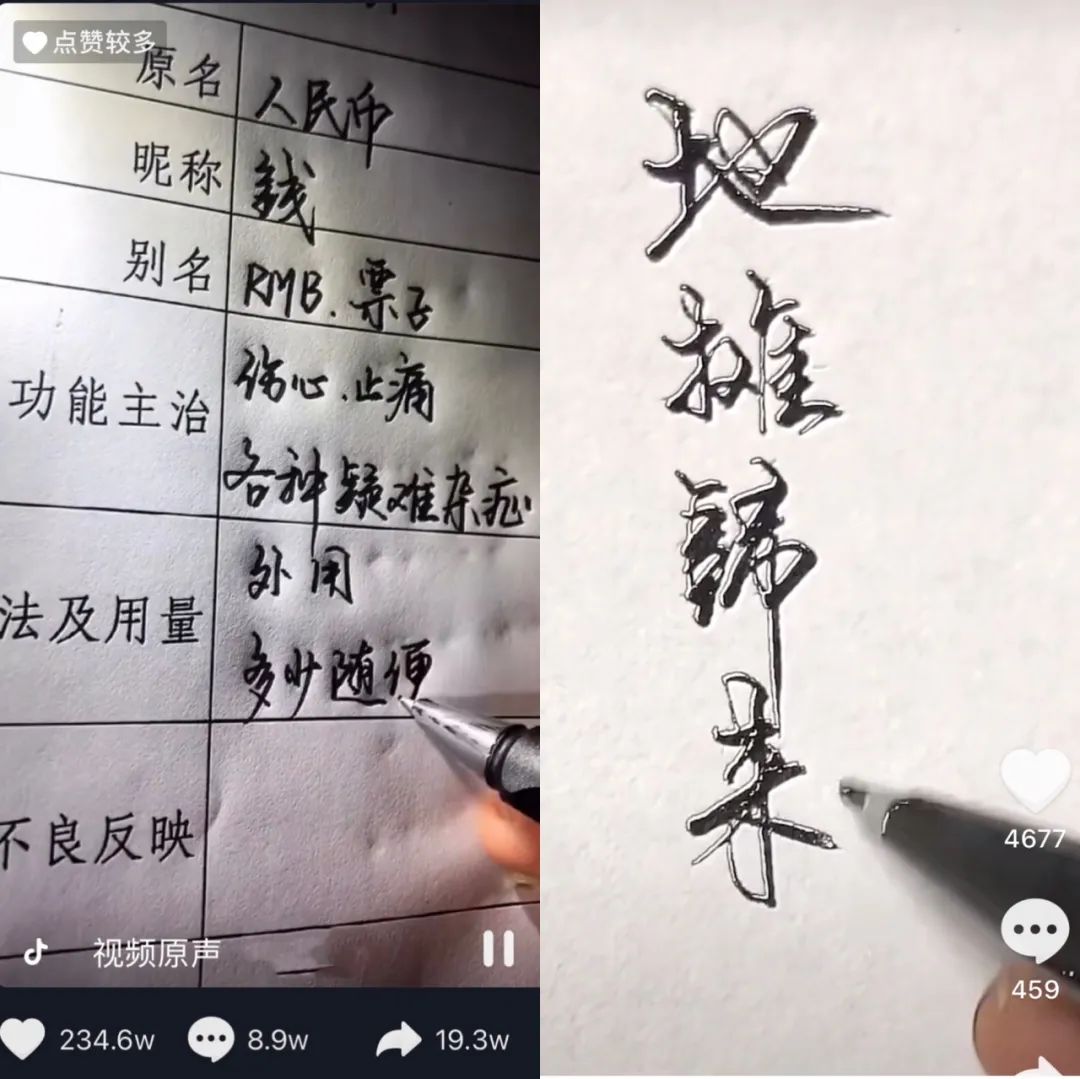 点赞较多
原名 人民币
昵称 錢
别名 RMB.票子
功能主治 伤心.止痛
各种疑难杂症
法及用量 外用
多少随便
不良反映
视频原声
234.6w 8.9w 19.3w
地
摊
歸
来
4677
459